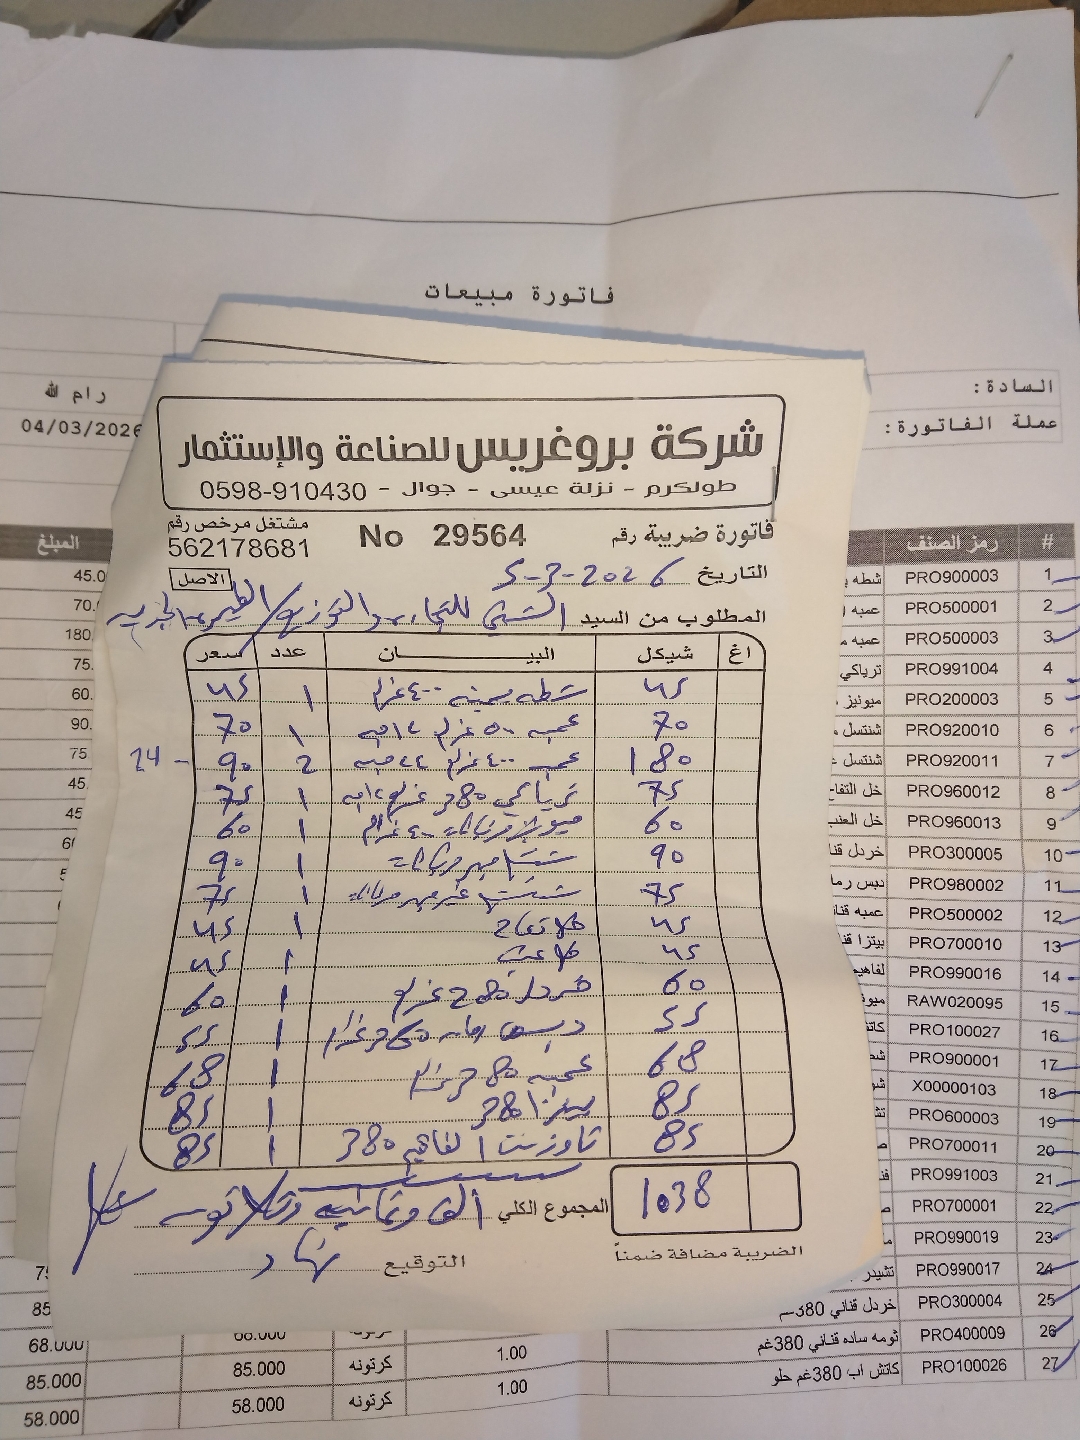 فاتورة مبيعات
السادة:
رام الله
عملة الفاتورة:
04/03/2026
شركة بروغريس للصناعة والإستثمار
طولكرم - نزلة عيسى - جوال - 0598-910430
فاتورة ضريبة رقم No 29564
مشتغل مرخص رقم
562178681
التاريخ 5-3-2026
الاصل
المطلوب من السيد للتجارة والتوزيع /
اغ شيكل البيـــــــان عدد سعر
45 شطه ٤٠٠ غرام 1 45
70 عمبه ٥٠٠ غرام ١٢ حبه 1 70
180 عمبه ٤٠٠ غرام ٢٤ حبه 2 90 - 24
75 ترياكي 380 غرام ١٢ حبه 1 75
60 ميونيز ٤٠٠ غرام 1 60
90 شنتسل 1 90
75 شنتسل غير 1 75
45 خل تفاح 1 45
45 خل عنب 1 45
60 خردل 380 غرام 1 60
55 دبس رمان 360 غرام 1 55
68 عمبه 380 غرام 1 68
85 بيتزا 380 1 85
85 لفاهيم 380 1 85
المجموع الكلي 1038
الف وثمانيه وثلاثون
الضريبة مضافة ضمناً
التوقيع نهاد
# رمز الصنف المبلغ
1 PRO900003 شطه 45.0
2 PRO500001 عمبه 70.
3 PRO500003 عمبه 180
4 PRO991004 ترياكي 75.
5 PRO200003 ميونيز 60.
6 PRO920010 شنتسل 90.
7 PRO920011 شنتسل 75
8 PRO960012 خل التفاح 45.
9 PRO960013 خل العنب 45
10 PRO300005 خردل قنا
11 PRO980002 دبس رما
12 PRO500002 عمبه قنا
13 PRO700010 بيتزا قنا
14 PRO990016 لفاهيم
15 RAW020095 ميو
16 PRO100027 كاتش
17 PRO900001 شط
18 X00000103
19 PRO600003
20 PRO700011
21 PRO991003
22 PRO700001
23 PRO990019
24 PRO990017 تشيدر
25 PRO300004 خردل قناني 380
26 PRO400009 ثومه ساده قناني 380غم 1.00 كرتونه 85.000 85.000
27 PRO100026 كاتش اب 380غم حلو 1.00 كرتونه 58.000 58.000